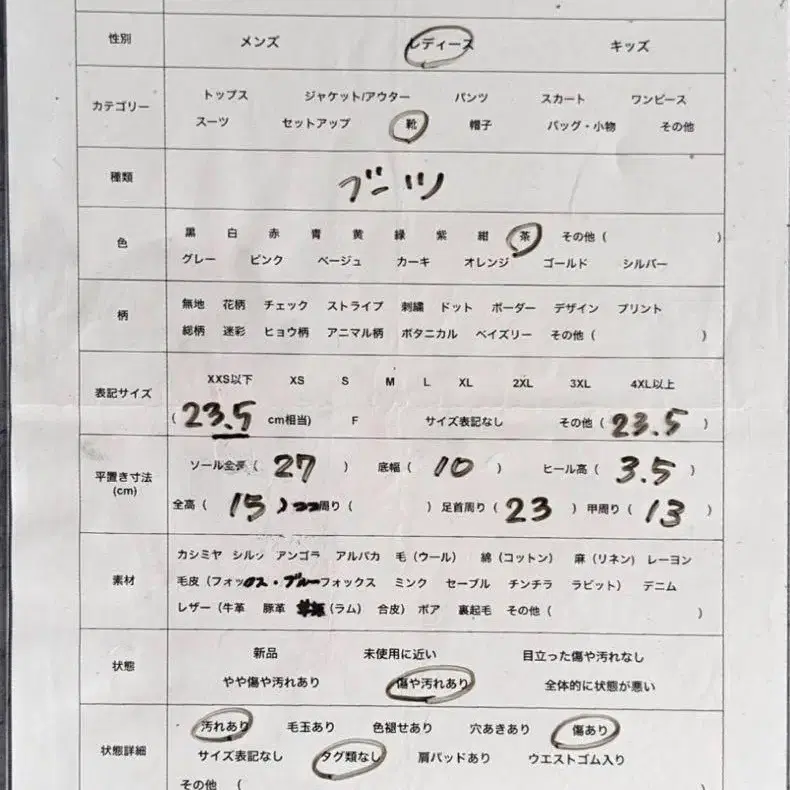 性別 メンズ レディース キッズ
カテゴリー トップス ジャケット/アウター パンツ スカート ワンピース
スーツ セットアップ 靴 帽子 バッグ・小物 その他
種類 ブーツ
色 黒 白 赤 青 黄 緑 紫 紺 茶 その他 ( )
グレー ピンク ベージュ カーキ オレンジ ゴールド シルバー
柄 無地 花柄 チェック ストライプ 刺繍 ドット ボーダー デザイン プリント
総柄 迷彩 ヒョウ柄 アニマル柄 ボタニカル ペイズリー その他 ( )
表記サイズ XXS以下 XS S M L XL 2XL 3XL 4XL以上
( 23.5 cm相当) F サイズ表記なし その他 ( 23.5 )
平置き寸法 (cm) ソール全長 ( 27 ) 底幅 ( 10 ) ヒール高 ( 3.5 )
全高 ( 15 ) 周り ( ) 足首周り ( 23 ) 甲周り ( 13 )
素材 カシミヤ シルク アンゴラ アルパカ 毛 (ウール) 綿 (コットン) 麻 (リネン) レーヨン
毛皮 (フォックス・ブルーフォックス ミンク セーブル チンチラ ラビット) デニム
レザー (牛革 豚革 (ラム) 合皮) ボア 裏起毛 その他 ( )
状態 新品 未使用に近い 目立った傷や汚れなし
やや傷や汚れあり 傷や汚れあり 全体的に状態が悪い
状態詳細 汚れあり 毛玉あり 色褪せあり 穴あきあり 傷あり
サイズ表記なし タグ類なし 肩パッドあり ウエストゴム入り
その他 (